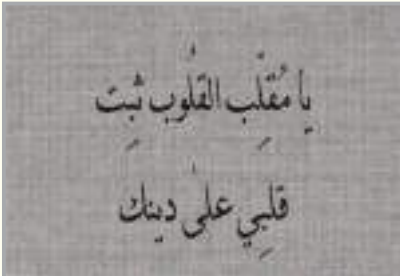 يا مُقلِّب القلُوب ثبِت
قلبِي على دينك